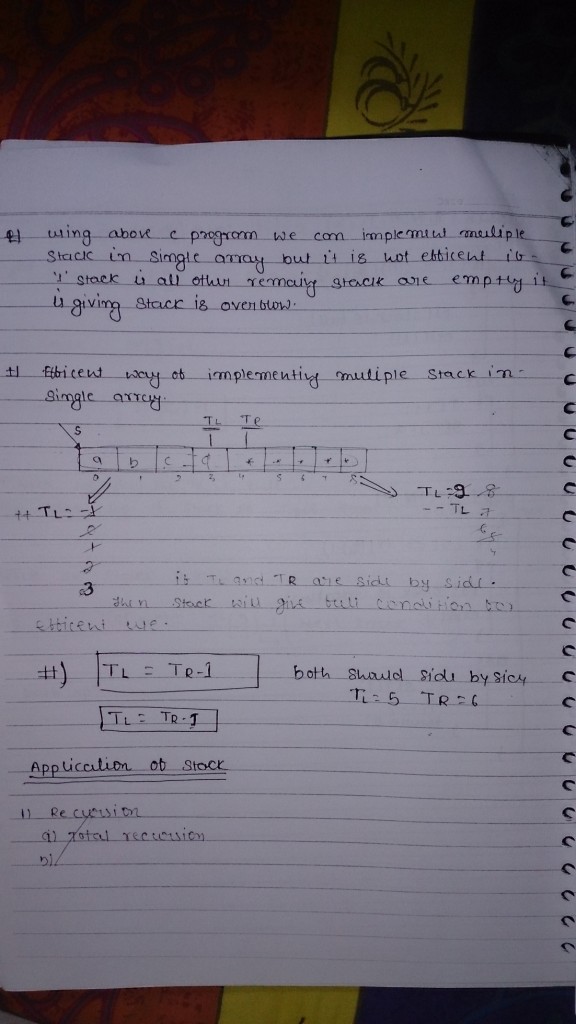 #) using above c program we can implement muliple
stack in single array but it is not efficent if
'1' stack is all other remaing stack are empty it
is giving stack is overflow.
#) Efficent way of implementing muliple stack in-
single array.
TL TR
S
a b c d * * * * *
0 1 2 3 4 5 6 7 8
TL = 9 8
++ TL = -1
-- TL 7
0 6
1 5
2 4
3
if TL and TR are side by side.
then stack will give full condition for
efficent use.
#) TL = TR-1 both should side by side
TL = 5 TR = 6
TL = TR-1
Application of stack
1) Recursion
a) Total recursion
b)